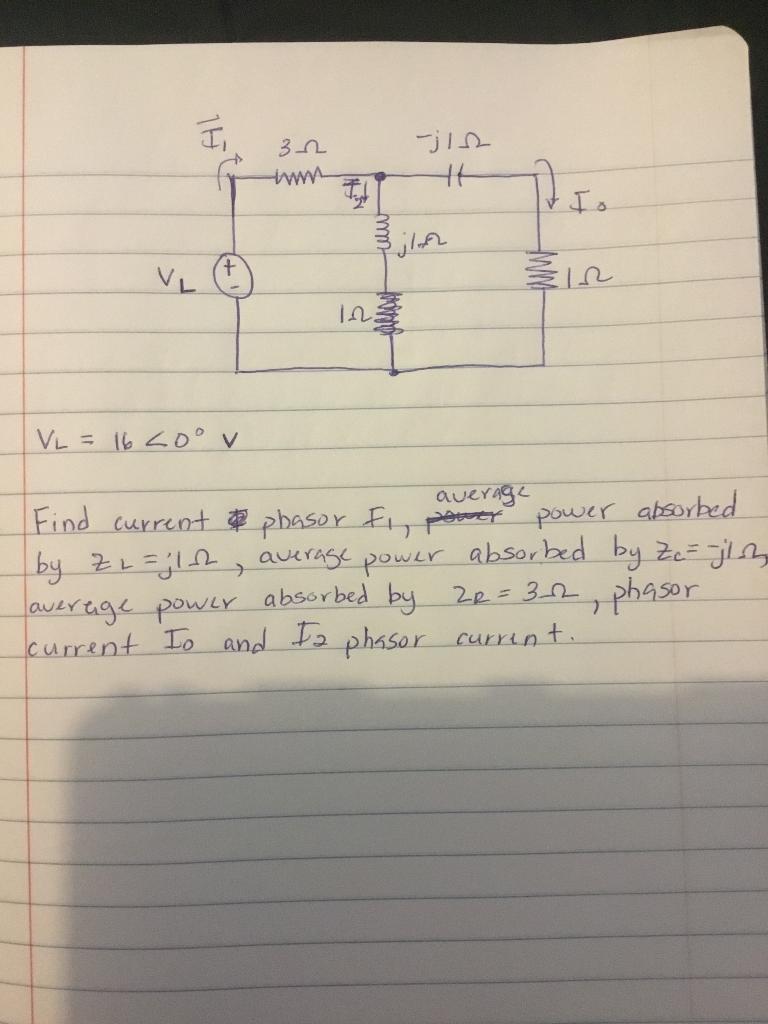 I₁
3Ω
-j1Ω
I₂
I₀
j1Ω
V_L
+
-
1Ω
1Ω
V_L = 16 <0° V
average
Find current phasor I₁, power absorbed
by Z_L = j1Ω, average power absorbed by Z_C = -j1Ω,
average power absorbed by Z_R = 3Ω, phasor
current I₀ and I₂ phasor current.